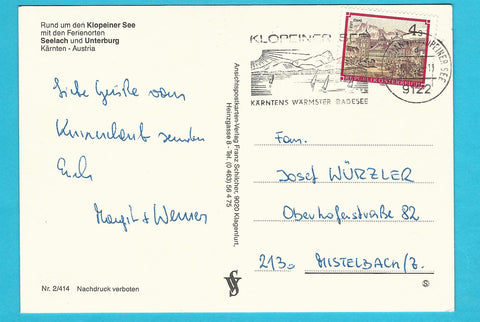 Rund um den Klopeiner See
mit den Ferienorten
Seelach und Unterburg
Kärnten - Austria
Liebe Grüße vom
Kurzurlaub senden
Euch
Margit + Werner
Nr. 2/414 Nachdruck verboten
Ansichtspostkarten-Verlag Franz Schilcher, 9020 Klagenfurt,
Heinzgasse 8 - Tel. (0 463) 56 4 75
KLOPEINER SEE
KÄRNTENS WÄRMSTER BADESEE
4 S
REPUBLIK ÖSTERREICH
9122
Fam.
Josef WÜRZLER
Oberhoferstraße 82
2130 MISTELBACH/Z.